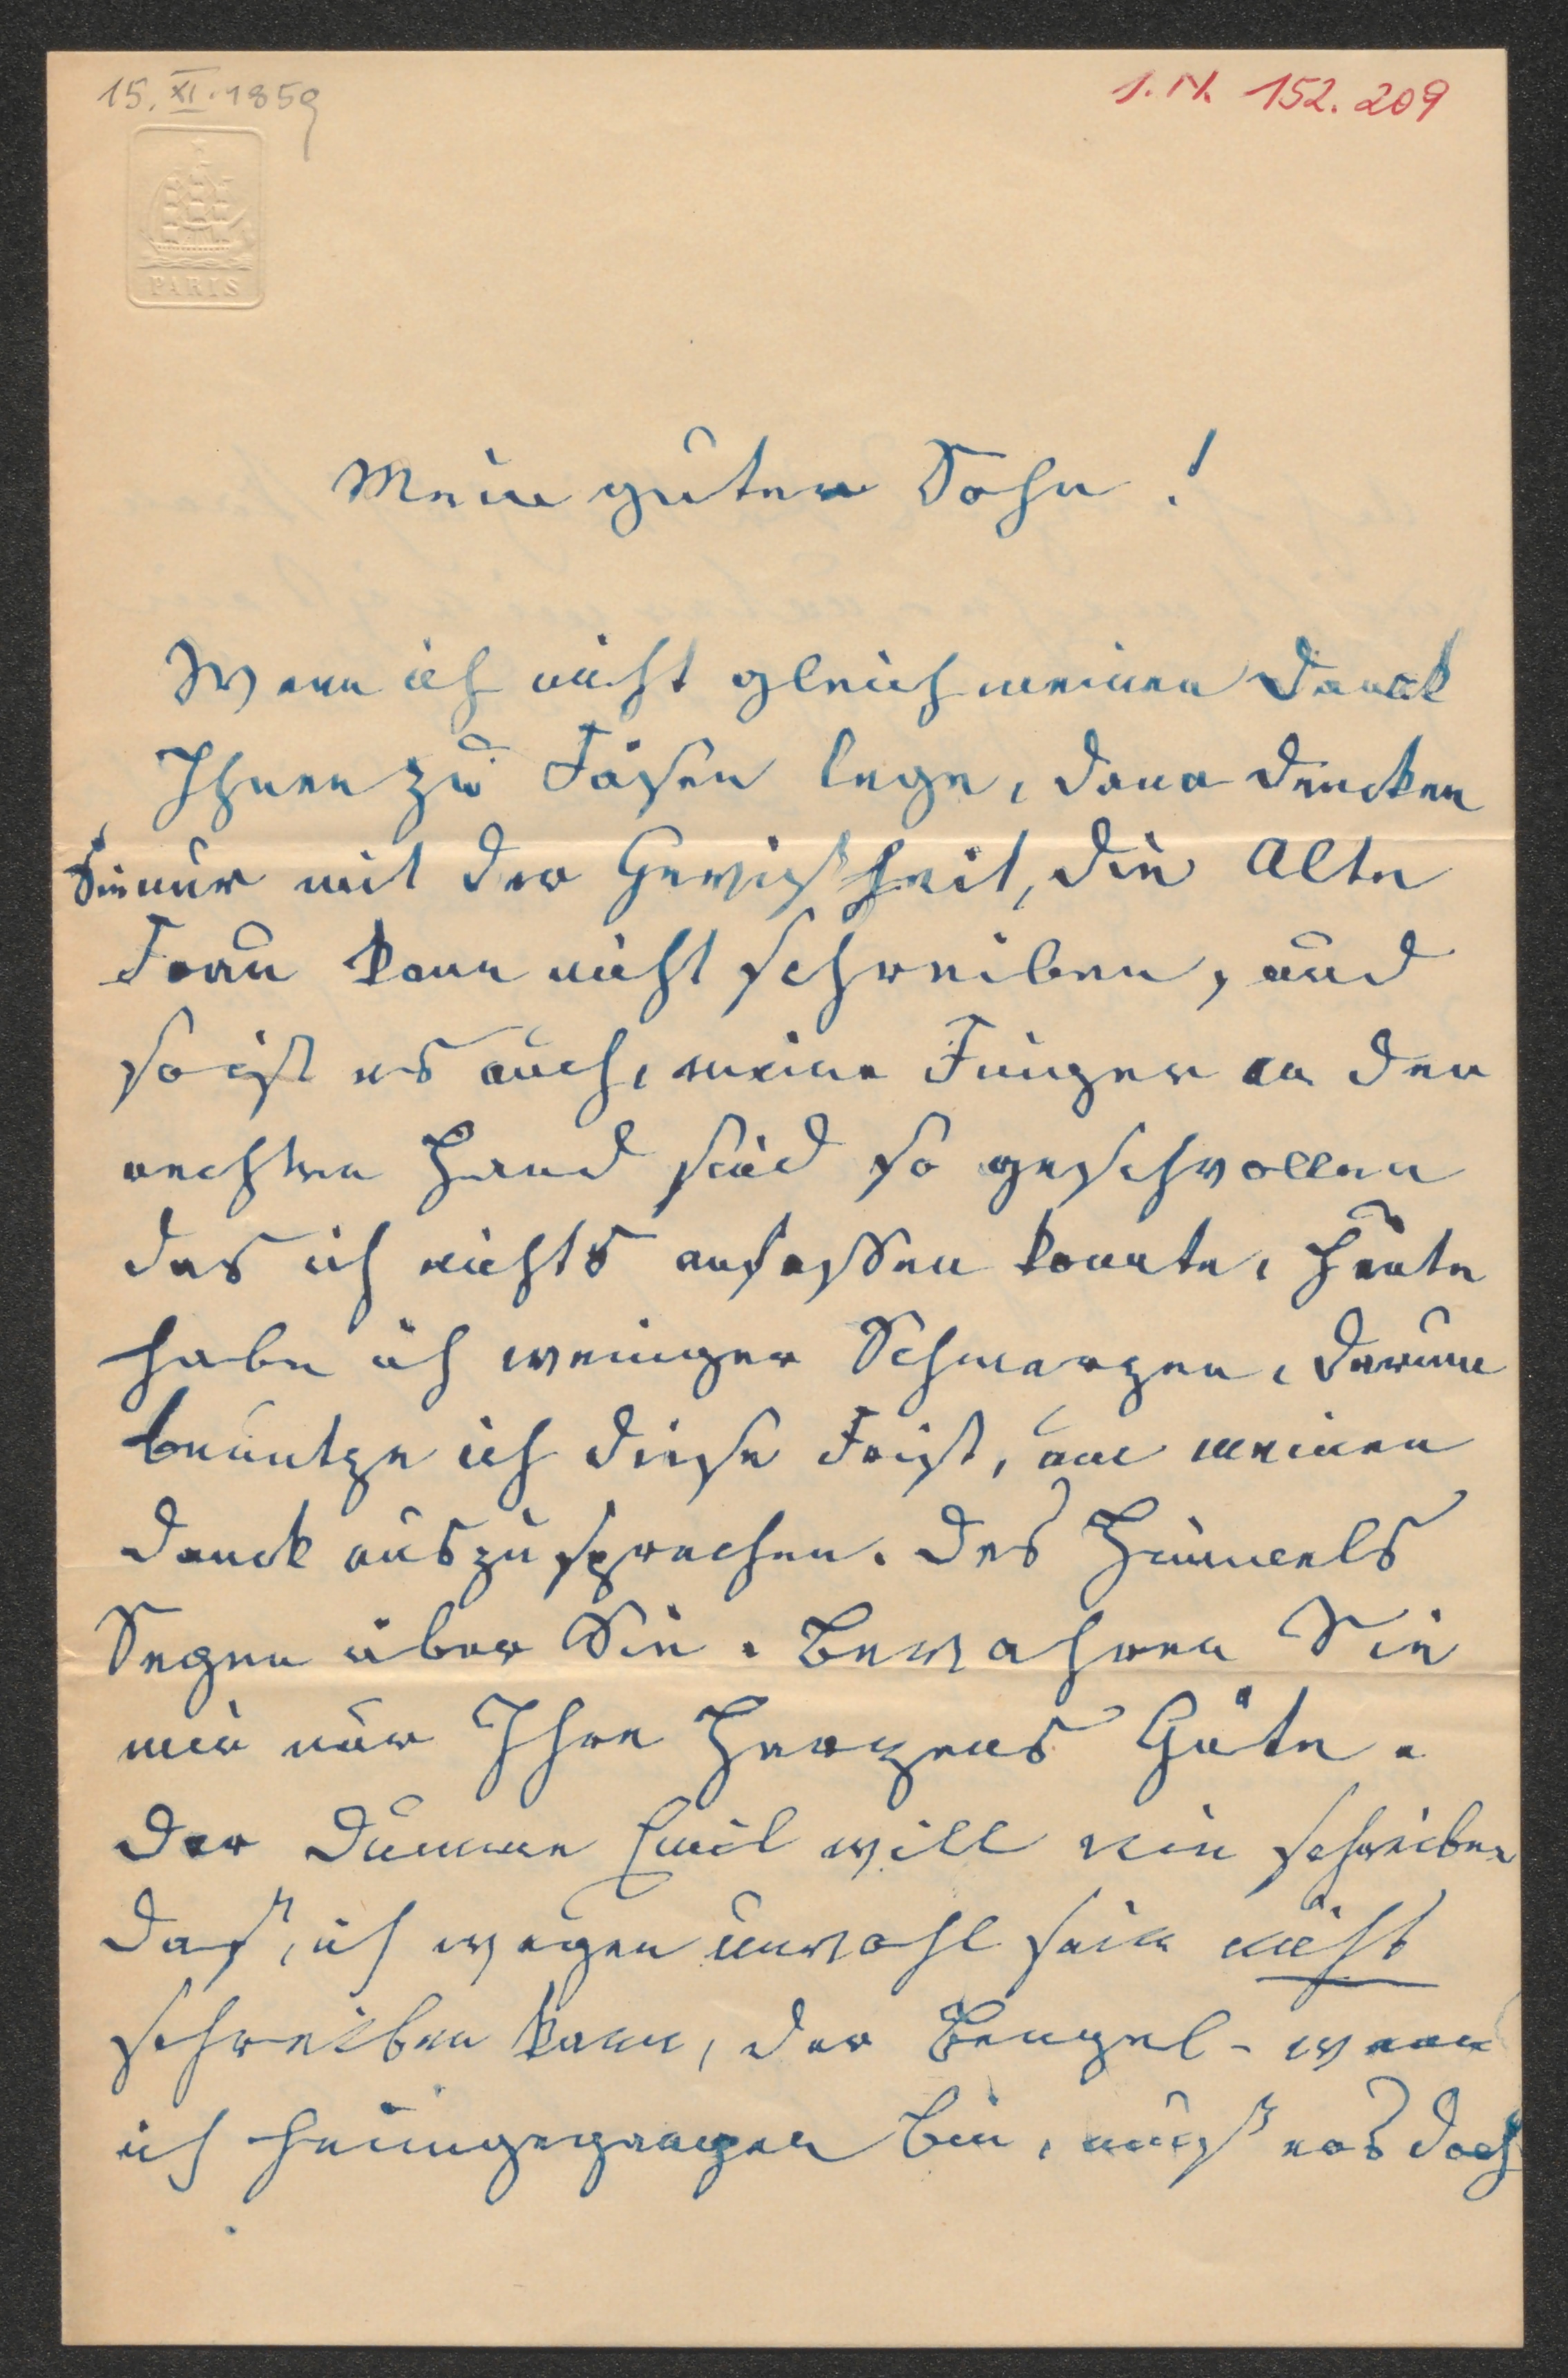 15. XI. 1859
I. N. 152.209
PARIS
Mein guter Sohn!
Wenn ich nicht gleich meinen Danck
Ihnen zu Füßen lege, dann dencken
Sie nur mit der Gewißheit, die Alte
Frau kann nicht schreiben, und
so ist es auch, meine Finger an der
rechten Hand sind so geschwollen
das ich nichts anfassen konnte, heute
habe ich weniger Schmerzen, darum
benutze ich diese Frist, um meinen
Danck auszusprechen. Des Himmels
Segen über Sie. Bewahren Sie
mir nur Ihre Herzens Güte.
Der Dumme Emil will nie schreiben
daß, ich wegen unwohl sein nicht
schreiben kann, der Bengel - wenn
ich heimgegangen bin, muß er's doch